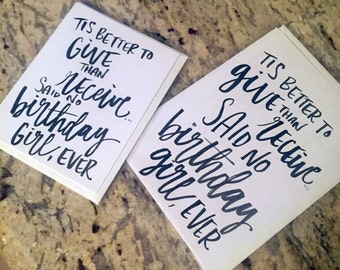 TIS BETTER TO
GIVE
THAN
receive...
SAID NO
birthday
GIRL, EVER
TIS BETTER TO
give THAN
receive...
SAID NO
birthday
girl, EVER